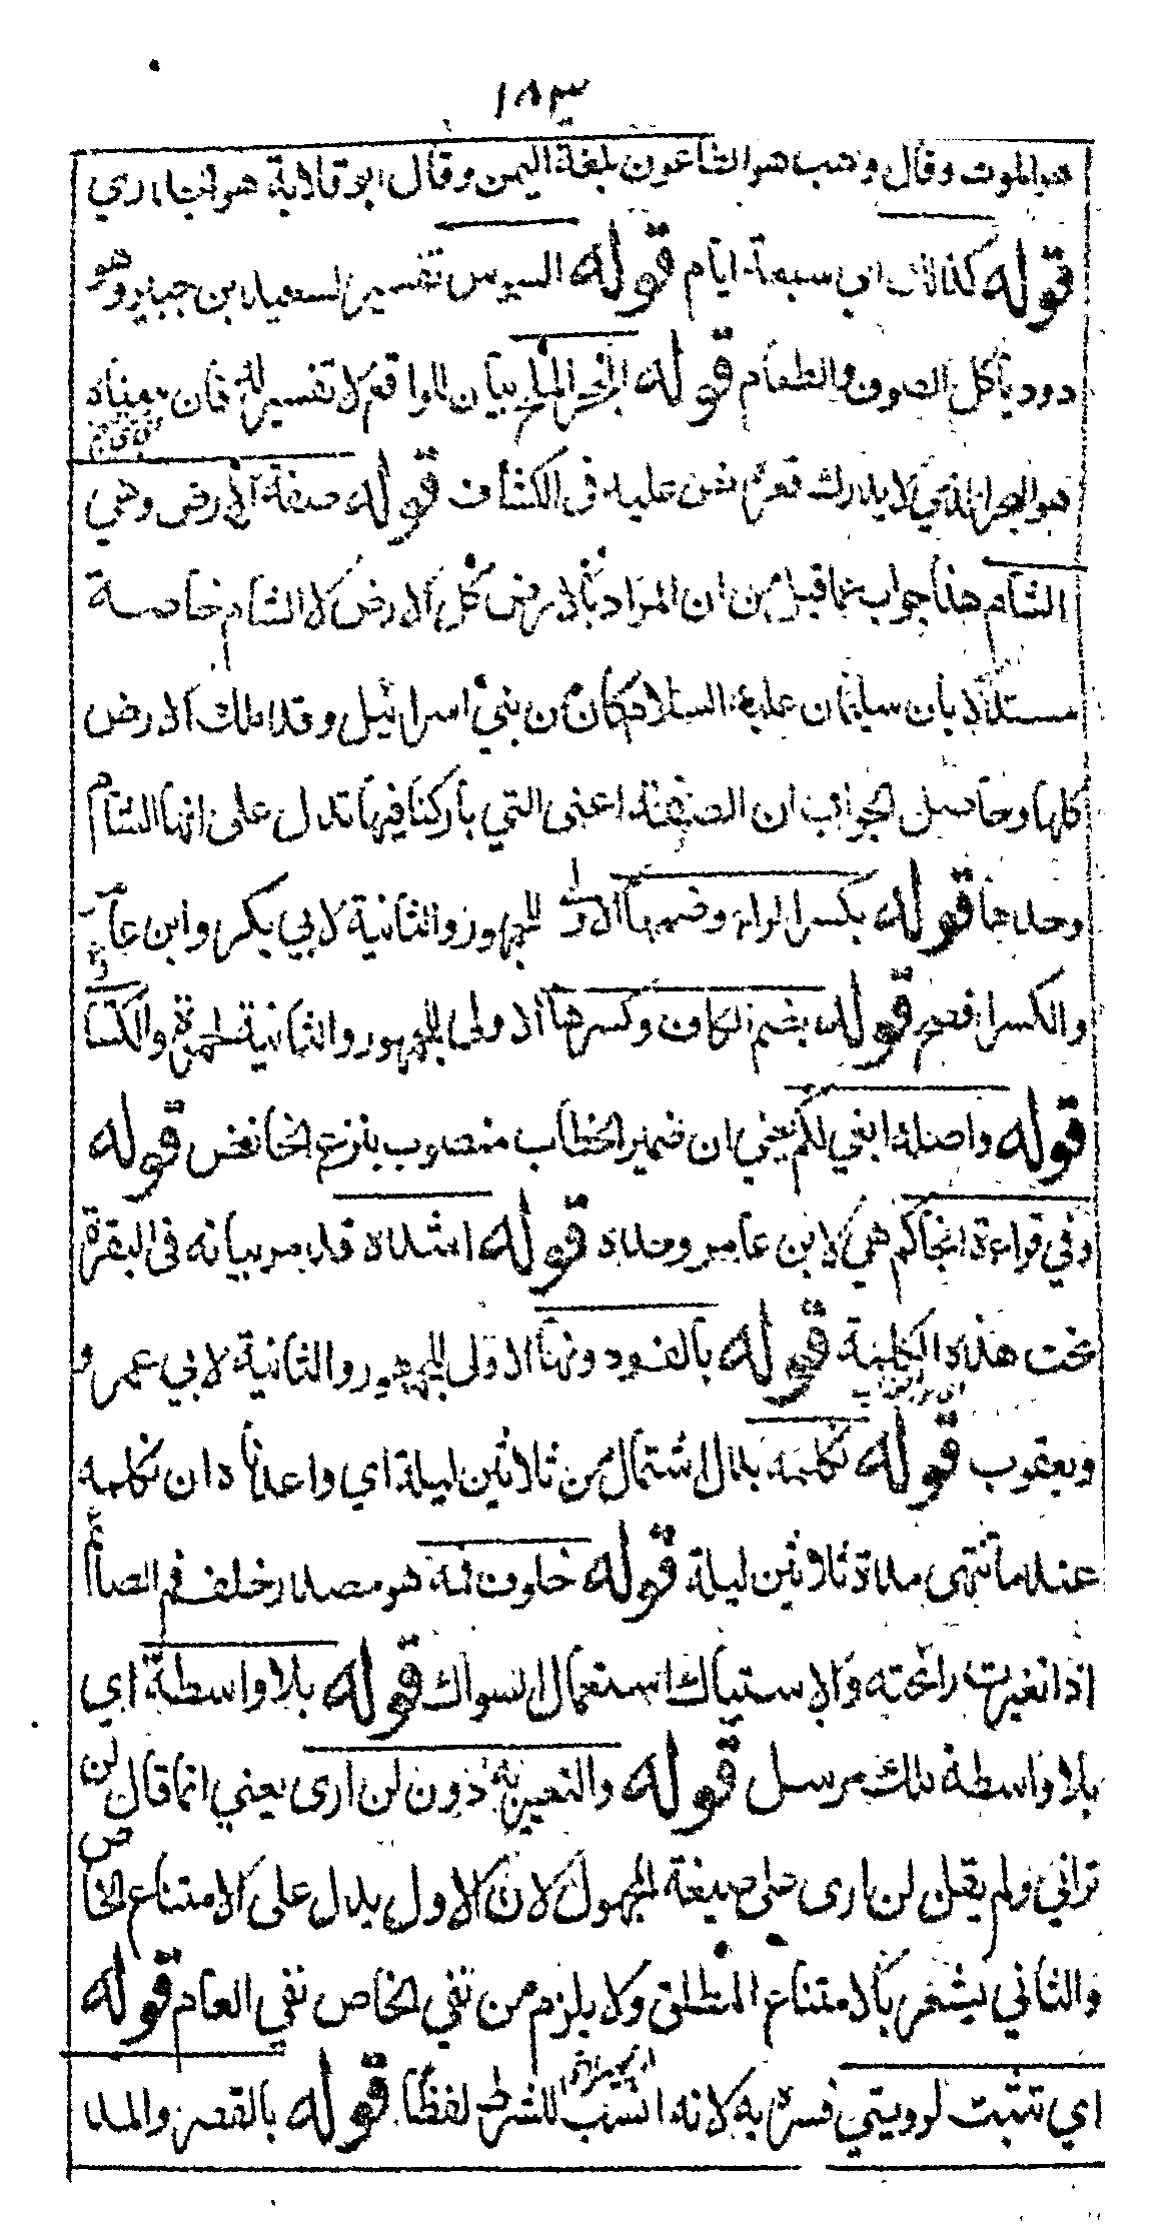 ١٨٣
هو الموت وقال وهب هو الطاعون بلغة اليمن وقال ابو قلابة هو الجدري
قوله كذلك اي سبعة ايام قوله السوس تفسير لسعيد بن جبير وهو
دود يأكل الصوف والطعام قوله البحر الملح بيان للواقع لا تفسير لليم فان معناه
هو البحر الذي لا يدرك قعره نص عليه في الكشاف قوله صفة الارض وهي
الشام هذا جواب عما قيل من ان المراد بالارض كل الارض لا الشام خاصة
مستدلا بان سليمان عليه السلام كان من بني اسرائيل وقد ملك الارض
كلها وحاصل الجواب ان الصفة اعنى التي باركنا فيها تدل على انها الشام
وحدها قوله بكسر الراء وضمها الاولى للجمهور والثانية لابي بكر وابن عامر
والكسر افصح قوله بضم الكاف وكسرها الاولى للجمهور والثانية لحمزة والكسائي
قوله واصله ابغي لكم يعني ان ضمير الخطاب منصوب بنزع الخافض قوله
وفي قراءة انجاكم هي لابن عامر وحده قوله اشده قد مر بيانه في البقرة
تحت هذه الكلمة قوله بالف ودونها الاولى للجمهور والثانية لابي عمرو
ويعقوب قوله نكلمه بدل اشتمال من ثلاثين ليلة اي واعدناه ان نكلمه
عند ما تنتهى مدة ثلاثين ليلة قوله خلوف فمه هو مصدر خلف فم الصائم
اذا تغيرت رائحته والاستياك استعمال السواك قوله بلا واسطة اي
بلا واسطة ملك مرسل قوله والتعبير به دون لن ارى يعني انما قال لن
تراني ولم يقل لن ارى على صيغة المجهول لان الاول يدل على الامتناع الخاص
والثاني يشعر بالامتناع المطلق ولا يلزم من نفي الخاص نفي العام قوله
اي تثبت لرويتي فسره به لانه انسب للشرط لفظا قوله بالقصر والمد